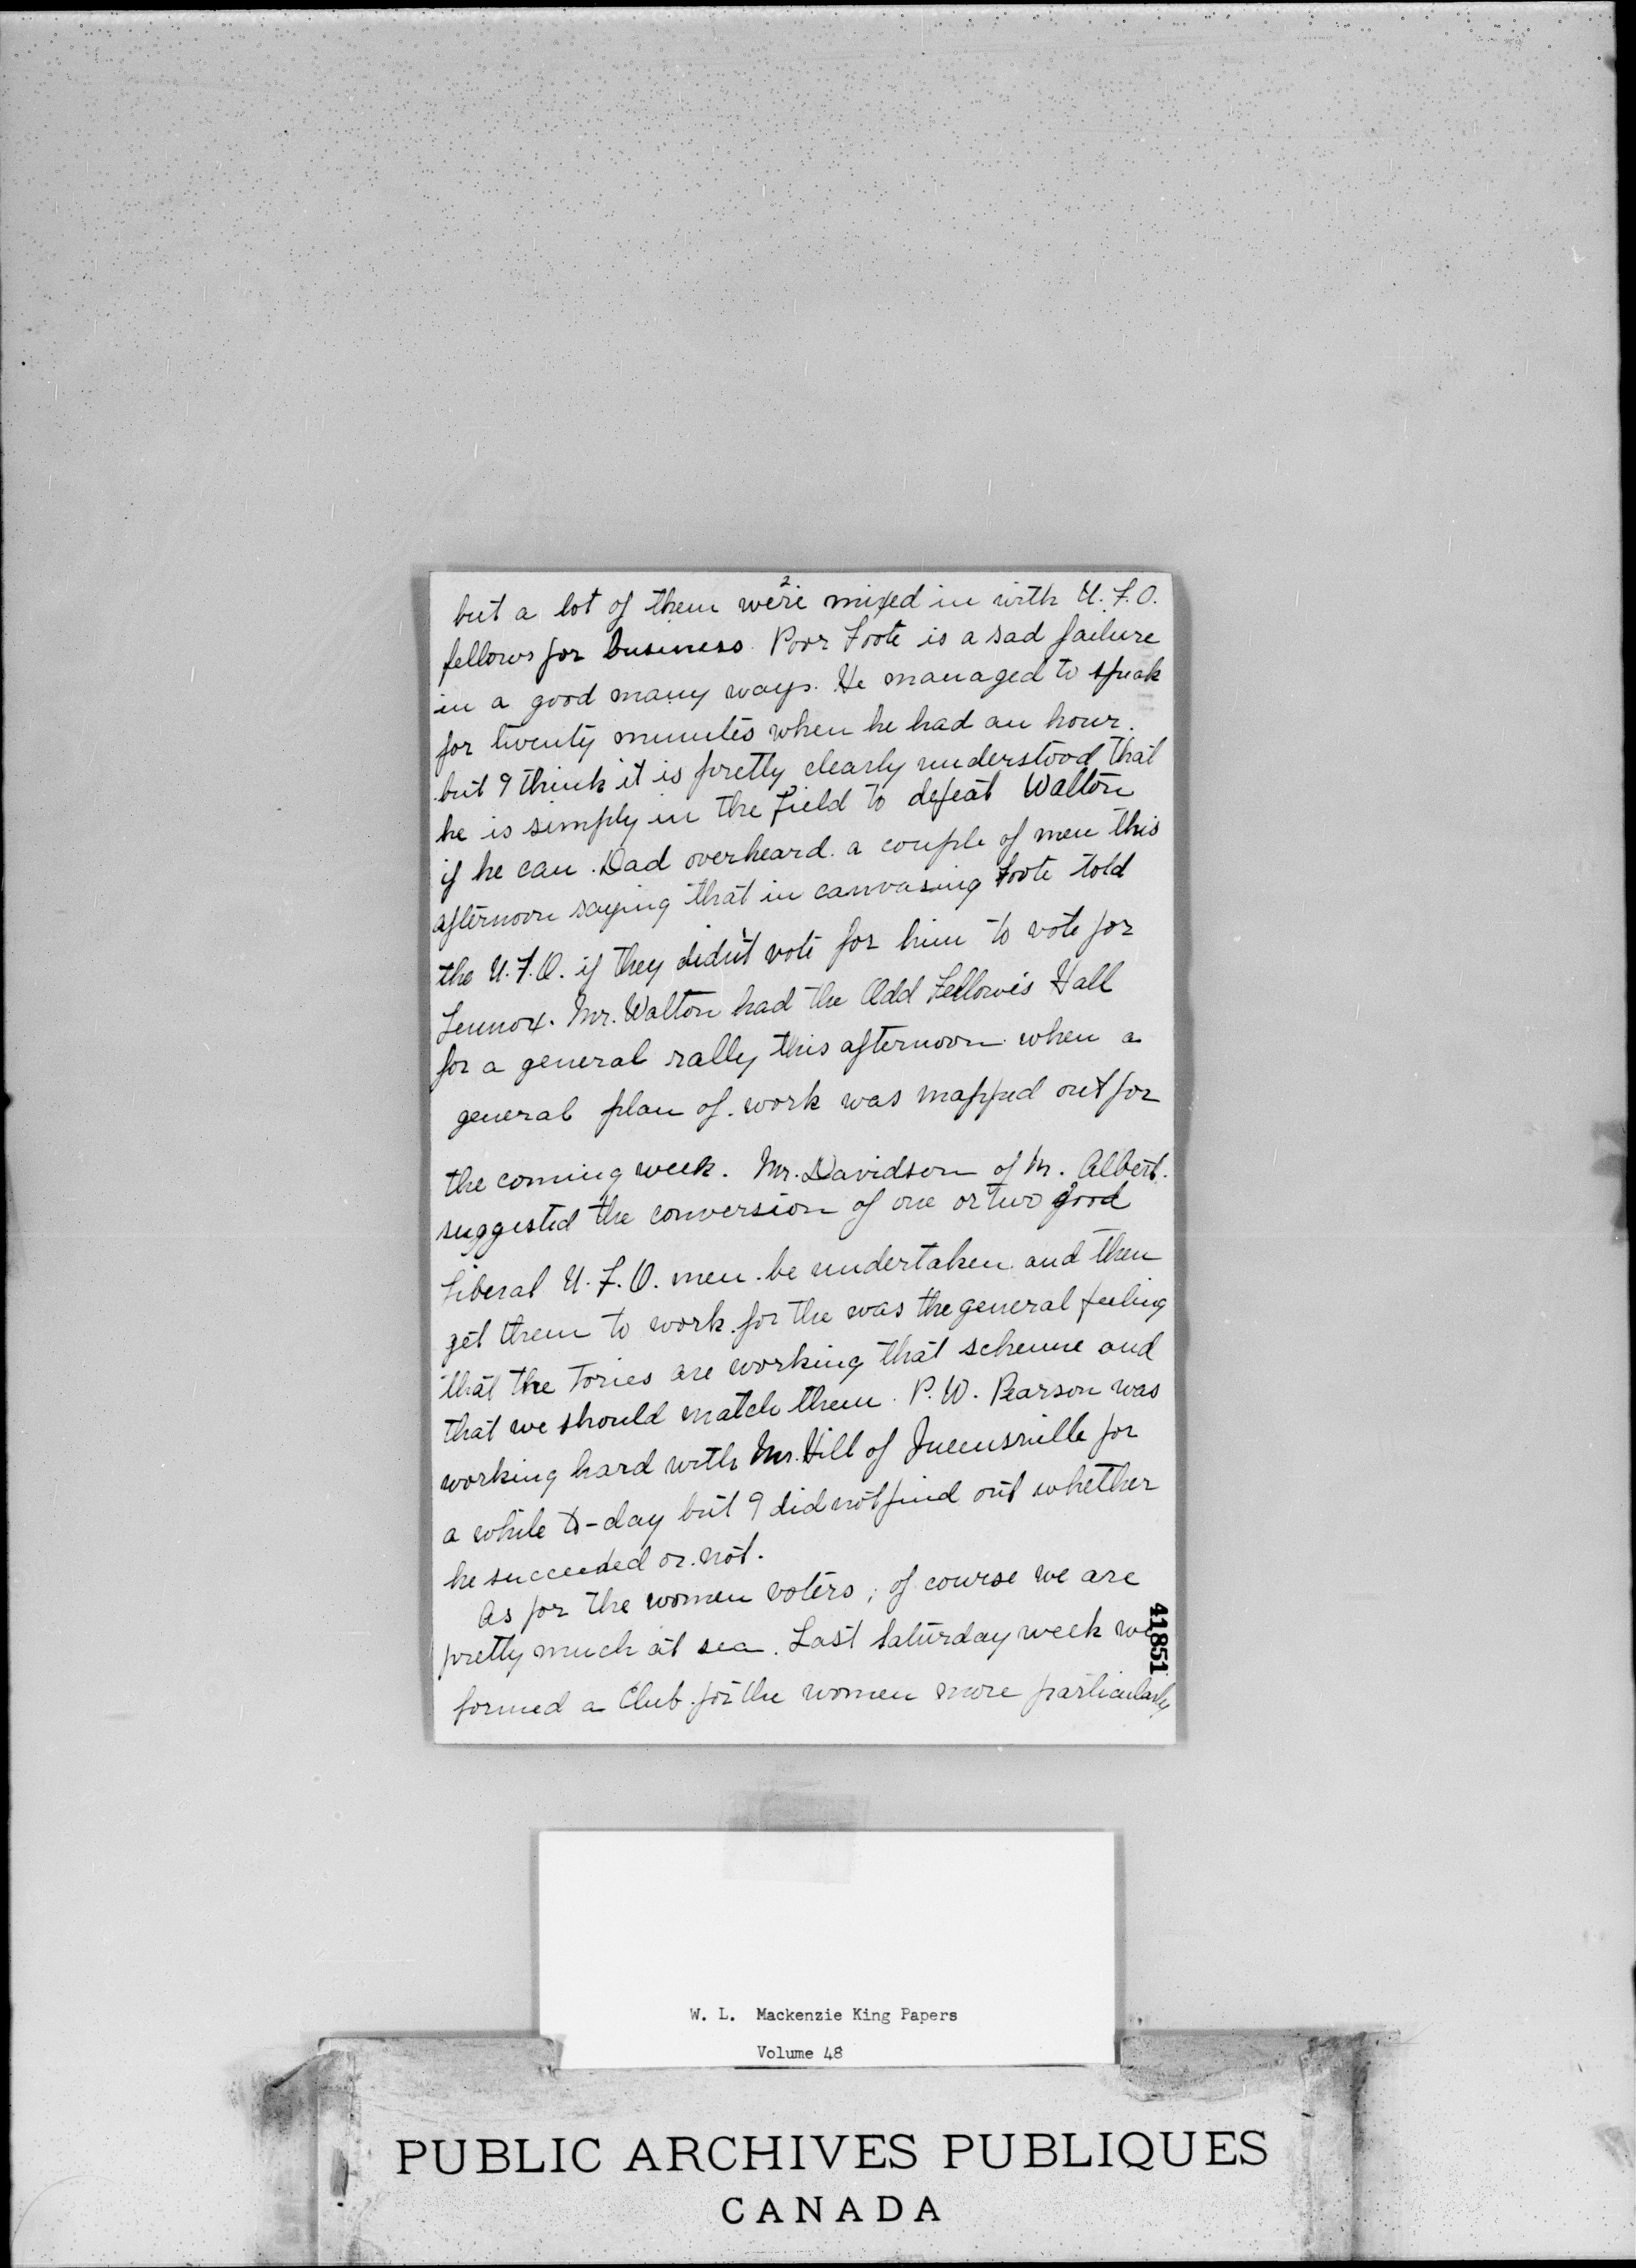 2
but a lot of them were mixed in with U.F.O.
fellows for business. Poor Foote is a sad failure
in a good many ways. He managed to speak
for twenty minutes when he had an hour.
but I think it is pretty clearly understood that
he is simply in the field to defeat Walton
if he can. Dad overheard a couple of men this
afternoon saying that in canvasing Foote told
the U.F.O. if they didn't vote for him to vote for
Lennox. Mr. Walton had the Odd Fellows's Hall
for a general rally this afternoon when a
general plan of work was mapped out for
the coming week. Mr. Davidson of M. Albert.
suggested the conversion of one or two good
Liberal U.F.O. men be undertaken and then
get them to work for the was the general feeling
that the Tories are working that scheme and
that we should match them. P.W. Pearson was
working hard with Mr. Hill of Queensville for
a while to-day but I did not find out whether
he succeeded or not.
As for the women voters; of course we are
pretty much at sea. Last Saturday week we
formed a Club for the women more particularly
41851
W. L. Mackenzie King Papers
Volume 48
PUBLIC ARCHIVES PUBLIQUES
CANADA